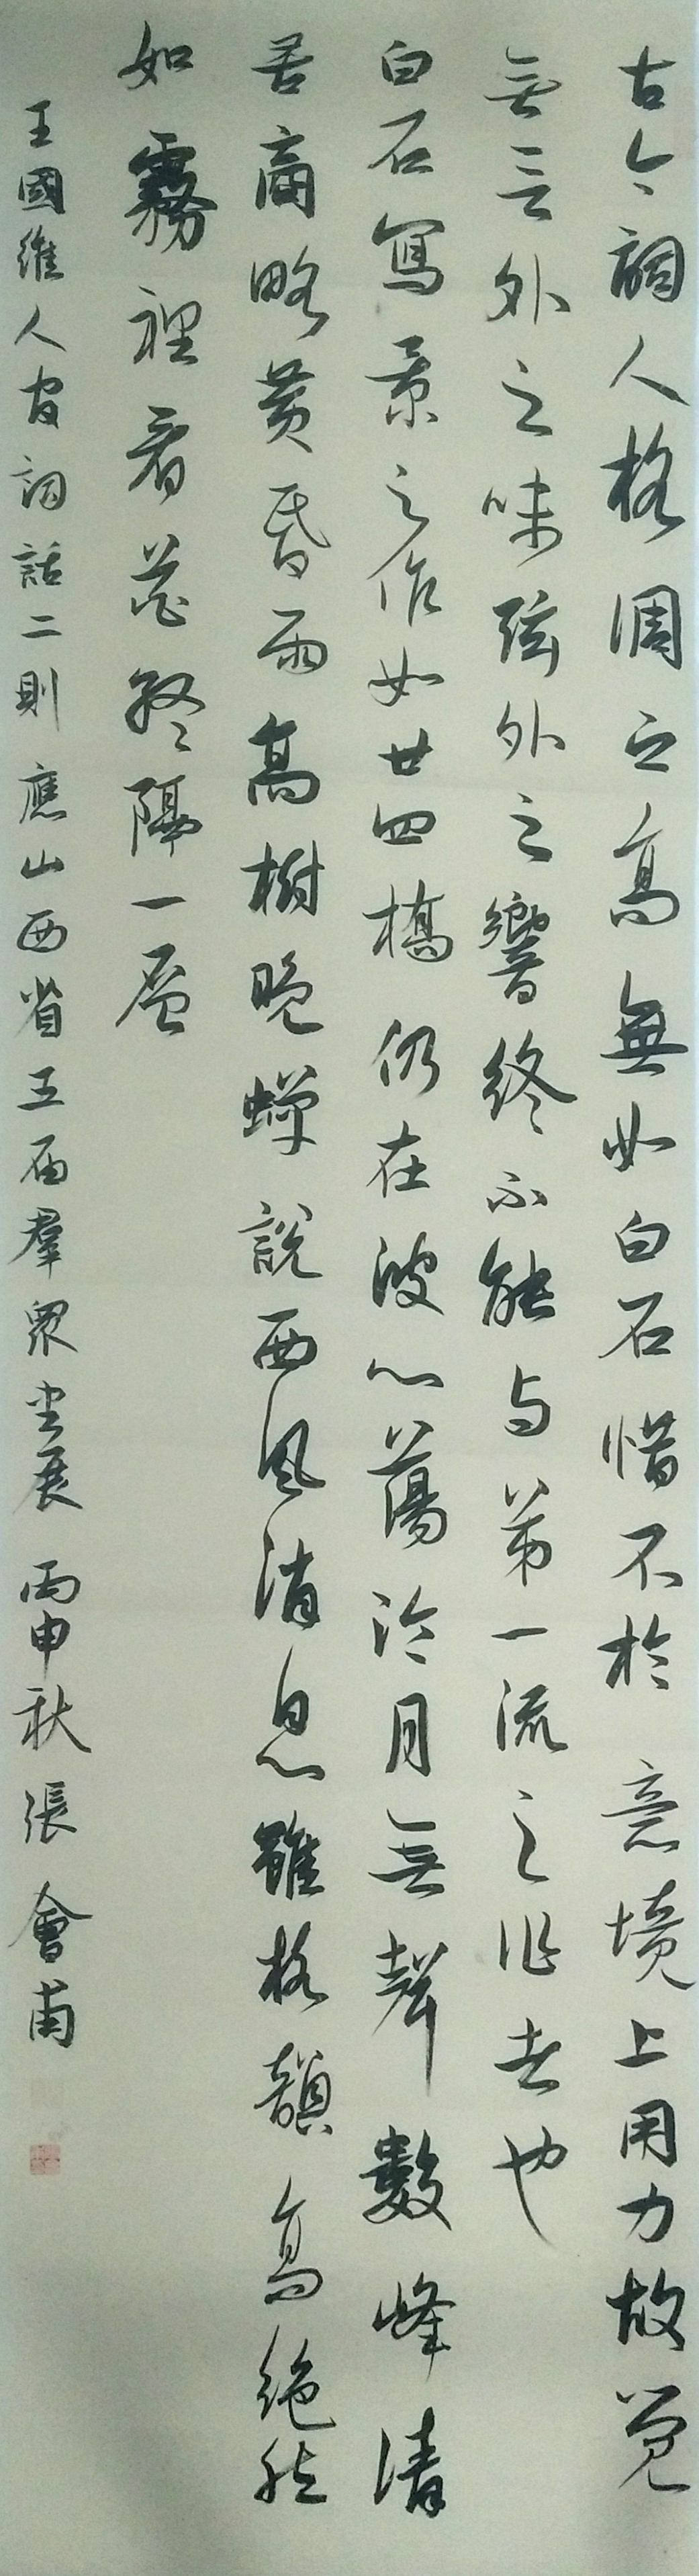 古今詞人格調之高無如白石惜不於意境上用力故覺
無言外之味弦外之響終不能与第一流之作者也
白石寫景之作如廿四橋仍在波心蕩冷月無聲數峰清
苦商略黃昏雨高樹晚蟬說西風消息雖格韻高絕然
如霧裡看花終隔一層
王國維人间詞話二則應山西省五届羣眾书展丙申秋張會甫